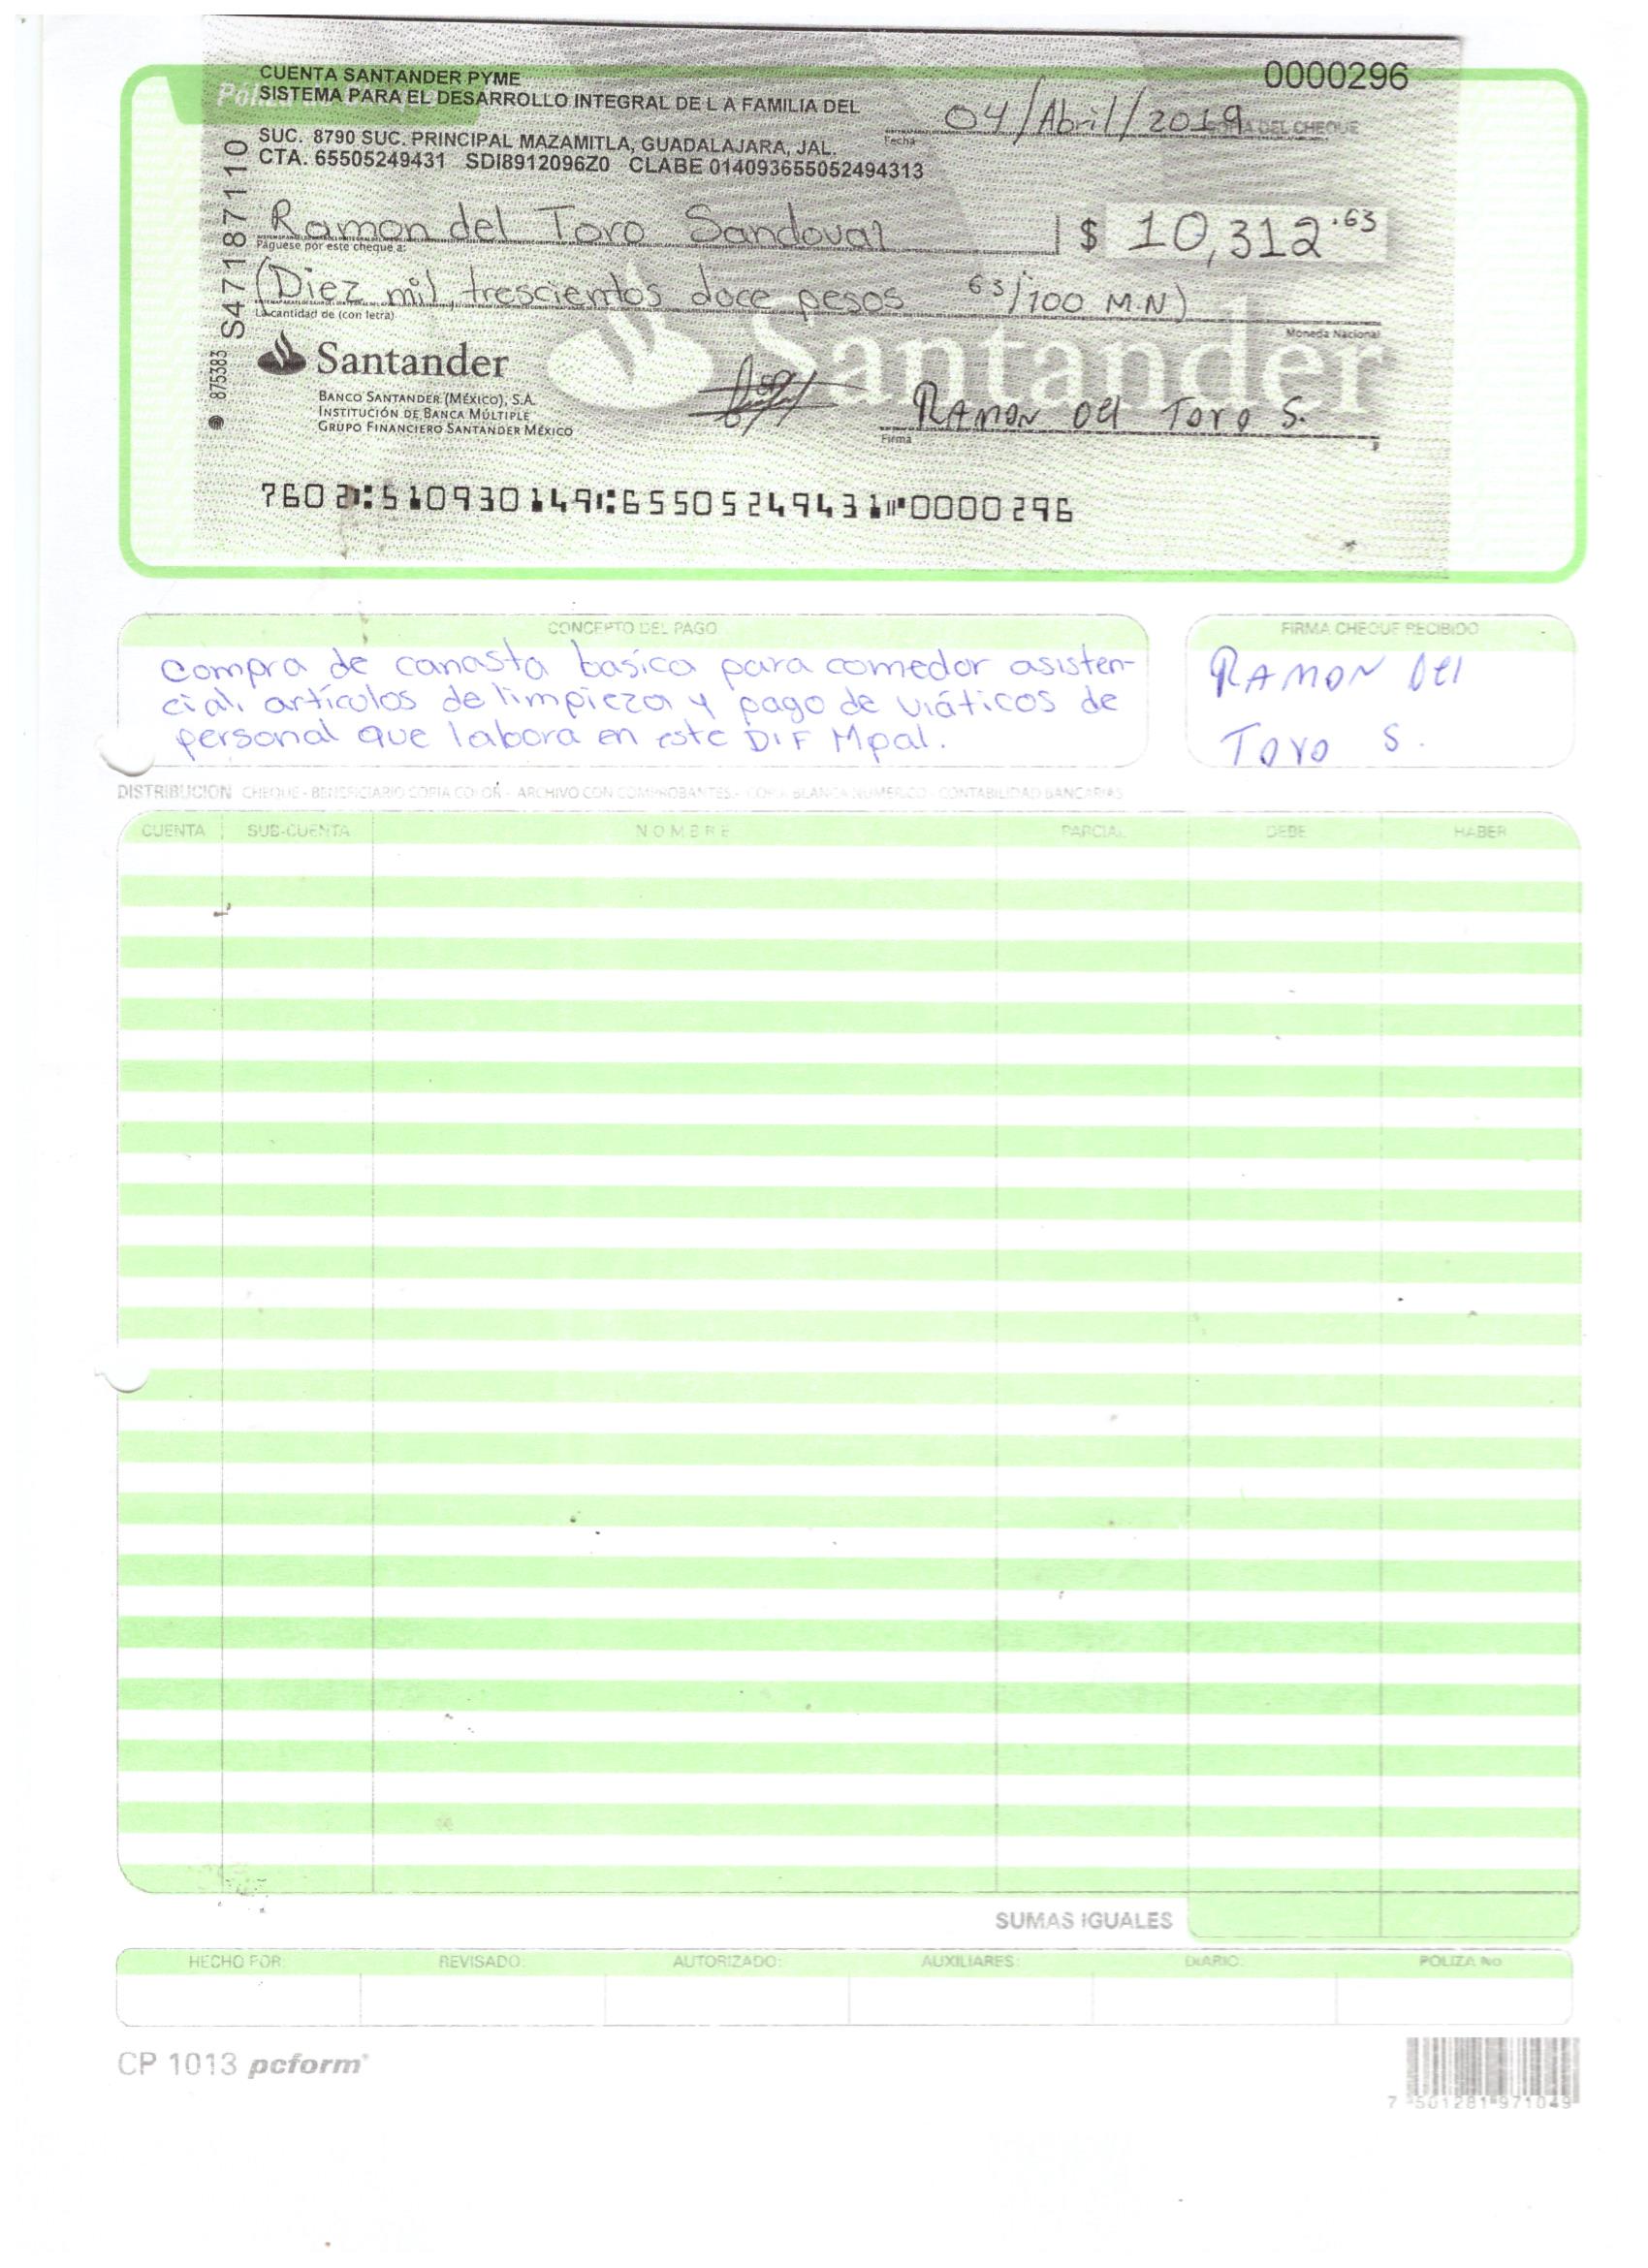 CUENTA SANTANDER PYME
0000296
SISTEMA PARA EL DESARROLLO INTEGRAL DE L A FAMILIA DEL
04/Abril/2019
DEL CHEQUE
Fecha
SUC. 8790 SUC. PRINCIPAL MAZAMITLA, GUADALAJARA, JAL.
CTA. 65505249431 SDI8912096Z0 CLABE 014093655052494313
Ramon del Toro Sandoval $ 10,312.63
Páguese por este cheque a:
(Diez mil trescientos doce pesos 63/100 M.N)
La cantidad de (con letra)
Moneda Nacional
875383 S47187110
Santander
Santander
BANCO SANTANDER (MÉXICO), S.A.
INSTITUCIÓN DE BANCA MÚLTIPLE
GRUPO FINANCIERO SANTANDER MÉXICO
RAMON DEl Toro S.
Firma
7602 510930149 65505249431 0000296
CONCEPTO DEL PAGO
Compra de canasta basica para comedor asisten-
cial, artículos de limpieza y pago de viáticos de
personal que labora en este DIF Mpal.
FIRMA CHEQUE RECIBIDO
RAMON DEl
Toro S.
DISTRIBUCION CHEQUE - BENEFICIARIO COPIA COLOR - ARCHIVO CON COMPROBANTES - COPIA BLANCA NUMERICO - CONTABILIDAD BANCARIAS
CUENTA SUB-CUENTA NOMBRE PARCIAL DEBE HABER
SUMAS IGUALES
HECHO POR: REVISADO: AUTORIZADO: AUXILIARES: DIARIO: POLIZA No
CP 1013 pcform
7 501281 971049